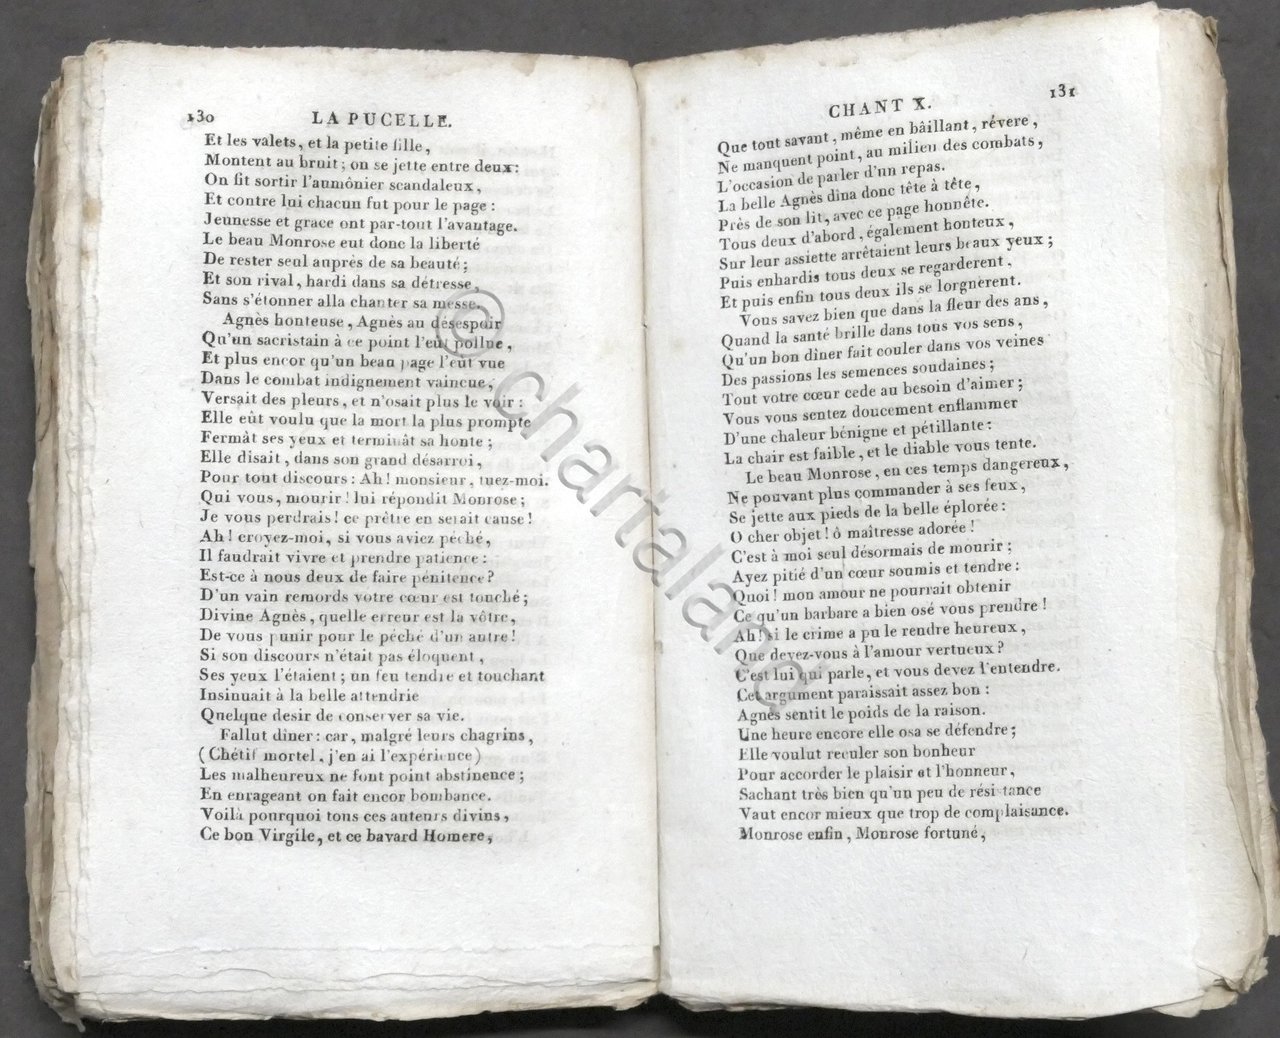 130 LA PUCELLE.
Et les valets, et la petite fille,
Montent au bruit; on se jette entre deux:
On fit sortir l'aumônier scandaleux,
Et contre lui chacun fut pour le page:
Jeunesse et grace ont par-tout l'avantage.
Le beau Monrose eut donc la liberté
De rester seul auprès de sa beauté;
Et son rival, hardi dans sa détresse,
Sans s'étonner alla chanter sa messe.
Agnès honteuse, Agnès au désespoir
Qu'un sacristain à ce point l'eût pollue,
Et plus encor qu'un beau page l'eût vue
Dans le combat indignement vaincue,
Versait des pleurs, et n'osait plus le voir:
Elle eût voulu que la mort la plus prompte
Fermât ses yeux et terminât sa honte;
Elle disait, dans son grand désarroi,
Pour tout discours: Ah! monsieur, tuez-moi.
Qui vous, mourir! lui répondit Monrose;
Je vous perdrais! ce prêtre en serait cause!
Ah! croyez-moi, si vous aviez péché,
Il faudrait vivre et prendre patience:
Est-ce à nous deux de faire pénitence?
D'un vain remords votre cœur est touché;
Divine Agnès, quelle erreur est la vôtre,
De vous punir pour le péché d'un autre!
Si son discours n'était pas éloquent,
Ses yeux l'étaient; un feu tendre et touchant
Insinuait à la belle attendrie
Quelque desir de conserver sa vie.
Fallut dîner: car, malgré leurs chagrins,
(Chétif mortel, j'en ai l'expérience)
Les malheureux ne font point abstinence;
En enrageant on fait encor bombance.
Voilà pourquoi tous ces auteurs divins,
Ce bon Virgile, et ce bavard Homere,
CHANT X. 131
Que tout savant, même en bâillant, révere,
Ne manquent point, au milieu des combats,
L'occasion de parler d'un repas.
La belle Agnès dîna donc tête à tête,
Près de son lit, avec ce page honnête.
Tous deux d'abord, également honteux,
Sur leur assiette arrêtaient leurs beaux yeux;
Puis enhardis tous deux se regarderent,
Et puis enfin tous deux ils se lorgnerent.
Vous savez bien que dans la fleur des ans,
Quand la santé brille dans tous vos sens,
Qu'un bon dîner fait couler dans vos veines
Des passions les semences soudaines;
Tout votre cœur cede au besoin d'aimer;
Vous vous sentez doucement enflammer
D'une chaleur bénigne et pétillante:
La chair est faible, et le diable vous tente.
Le beau Monrose, en ces temps dangereux,
Ne pouvant plus commander à ses feux,
Se jette aux pieds de la belle éplorée:
O cher objet! ô maîtresse adorée!
C'est à moi seul désormais de mourir;
Ayez pitié d'un cœur soumis et tendre:
Quoi! mon amour ne pourrait obtenir
Ce qu'un barbare a bien osé vous prendre!
Ah! si le crime a pu le rendre heureux,
Que devez-vous à l'amour vertueux?
C'est lui qui parle, et vous devez l'entendre.
Cet argument paraissait assez bon:
Agnès sentit le poids de la raison.
Une heure encore elle osa se défendre;
Elle voulut reculer son bonheur
Pour accorder le plaisir et l'honneur,
Sachant très bien qu'un peu de résistance
Vaut encor mieux que trop de complaisance.
Monrose enfin, Monrose fortuné,
© chartaland